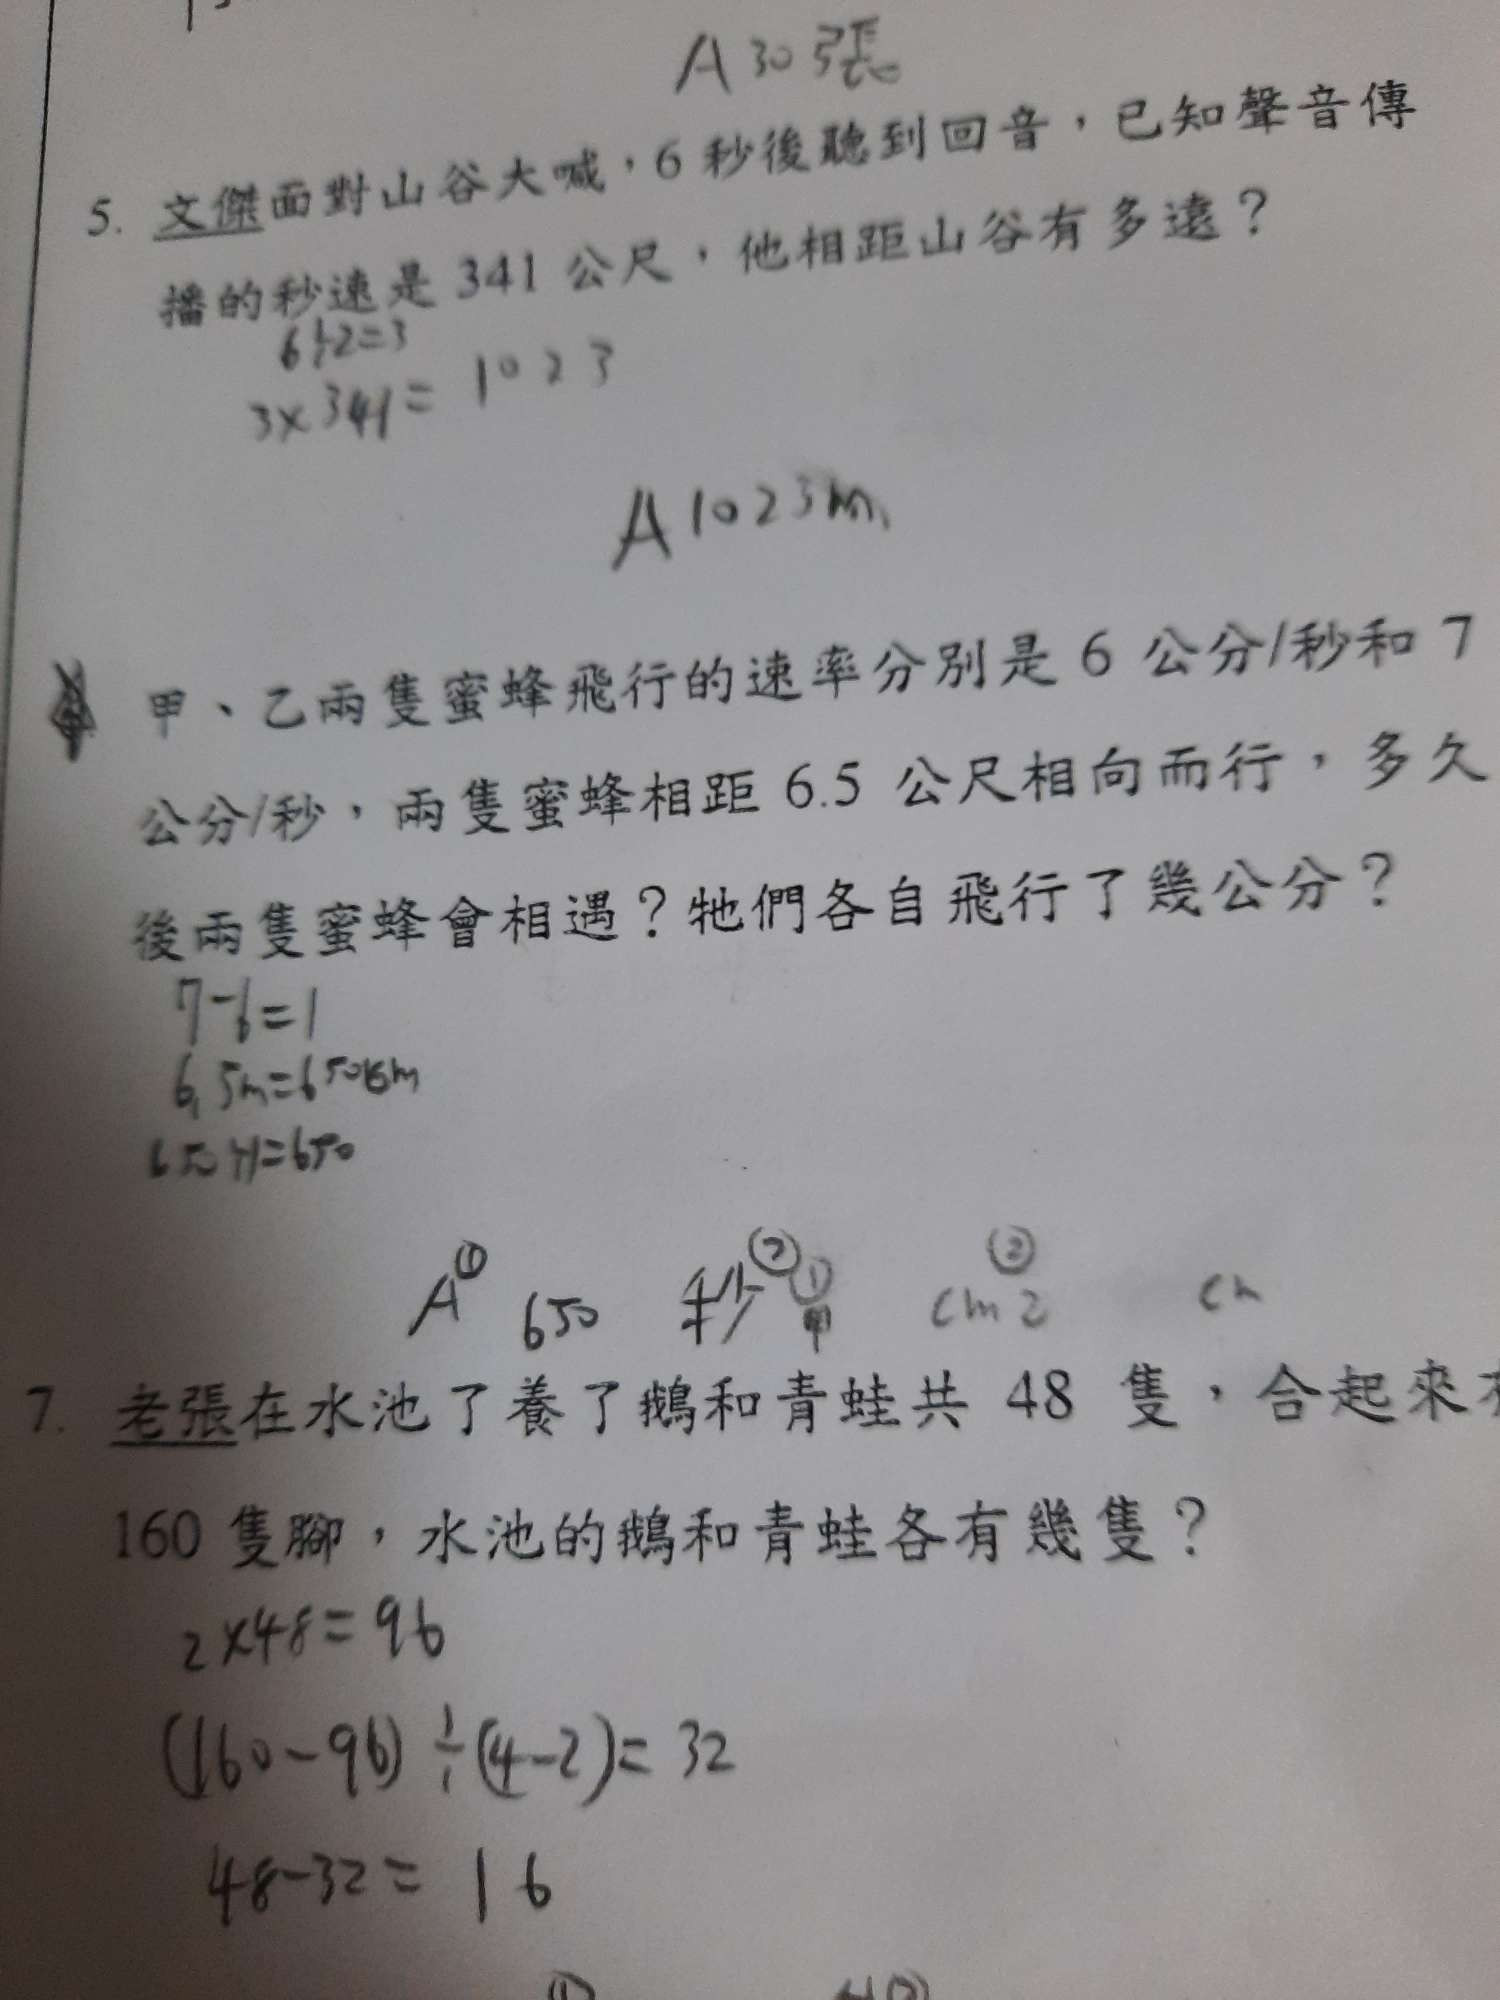 A 30張
5. 文傑面對山谷大喊，6 秒後聽到回音，已知聲音傳
播的秒速是 341 公尺，他相距山谷有多遠？
6÷2=3
3×341= 1023
A 1023m
甲、乙兩隻蜜蜂飛行的速率分別是 6 公分/秒和 7
公分/秒，兩隻蜜蜂相距 6.5 公尺相向而行，多久
後兩隻蜜蜂會相遇？牠們各自飛行了幾公分？
7-6=1
6.5m=650cm
650÷1=650
A ① 650 秒 ② ① 甲 cm ② 乙 cm
7. 老張在水池了養了鵝和青蛙共 48 隻，合起來
160 隻腳，水池的鵝和青蛙各有幾隻？
2×48=96
(160-96)÷(4-2)=32
48-32=16